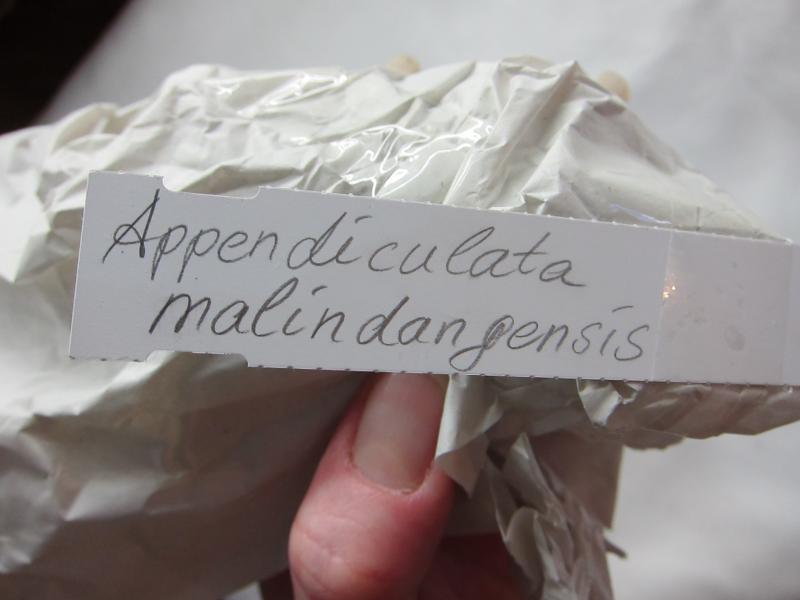 Appendiculata
malindangensis